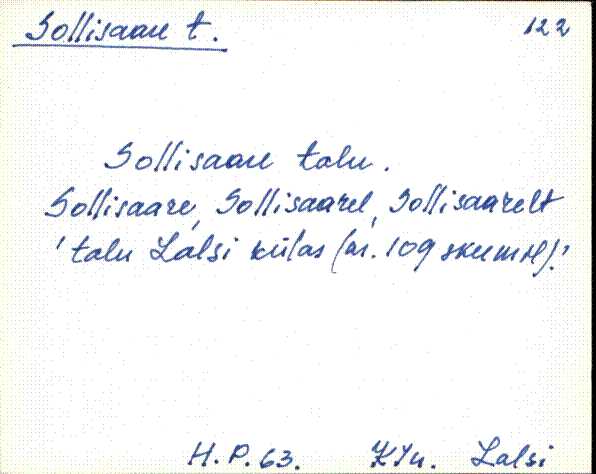 Sollisaare t. 122
Sollisaare talu.
Sollisaare, Sollisaarel, Sollisaarelt
'talu Lalsi külas (nr. 109 skeemil).'
H.P.63. KJn. Lalsi